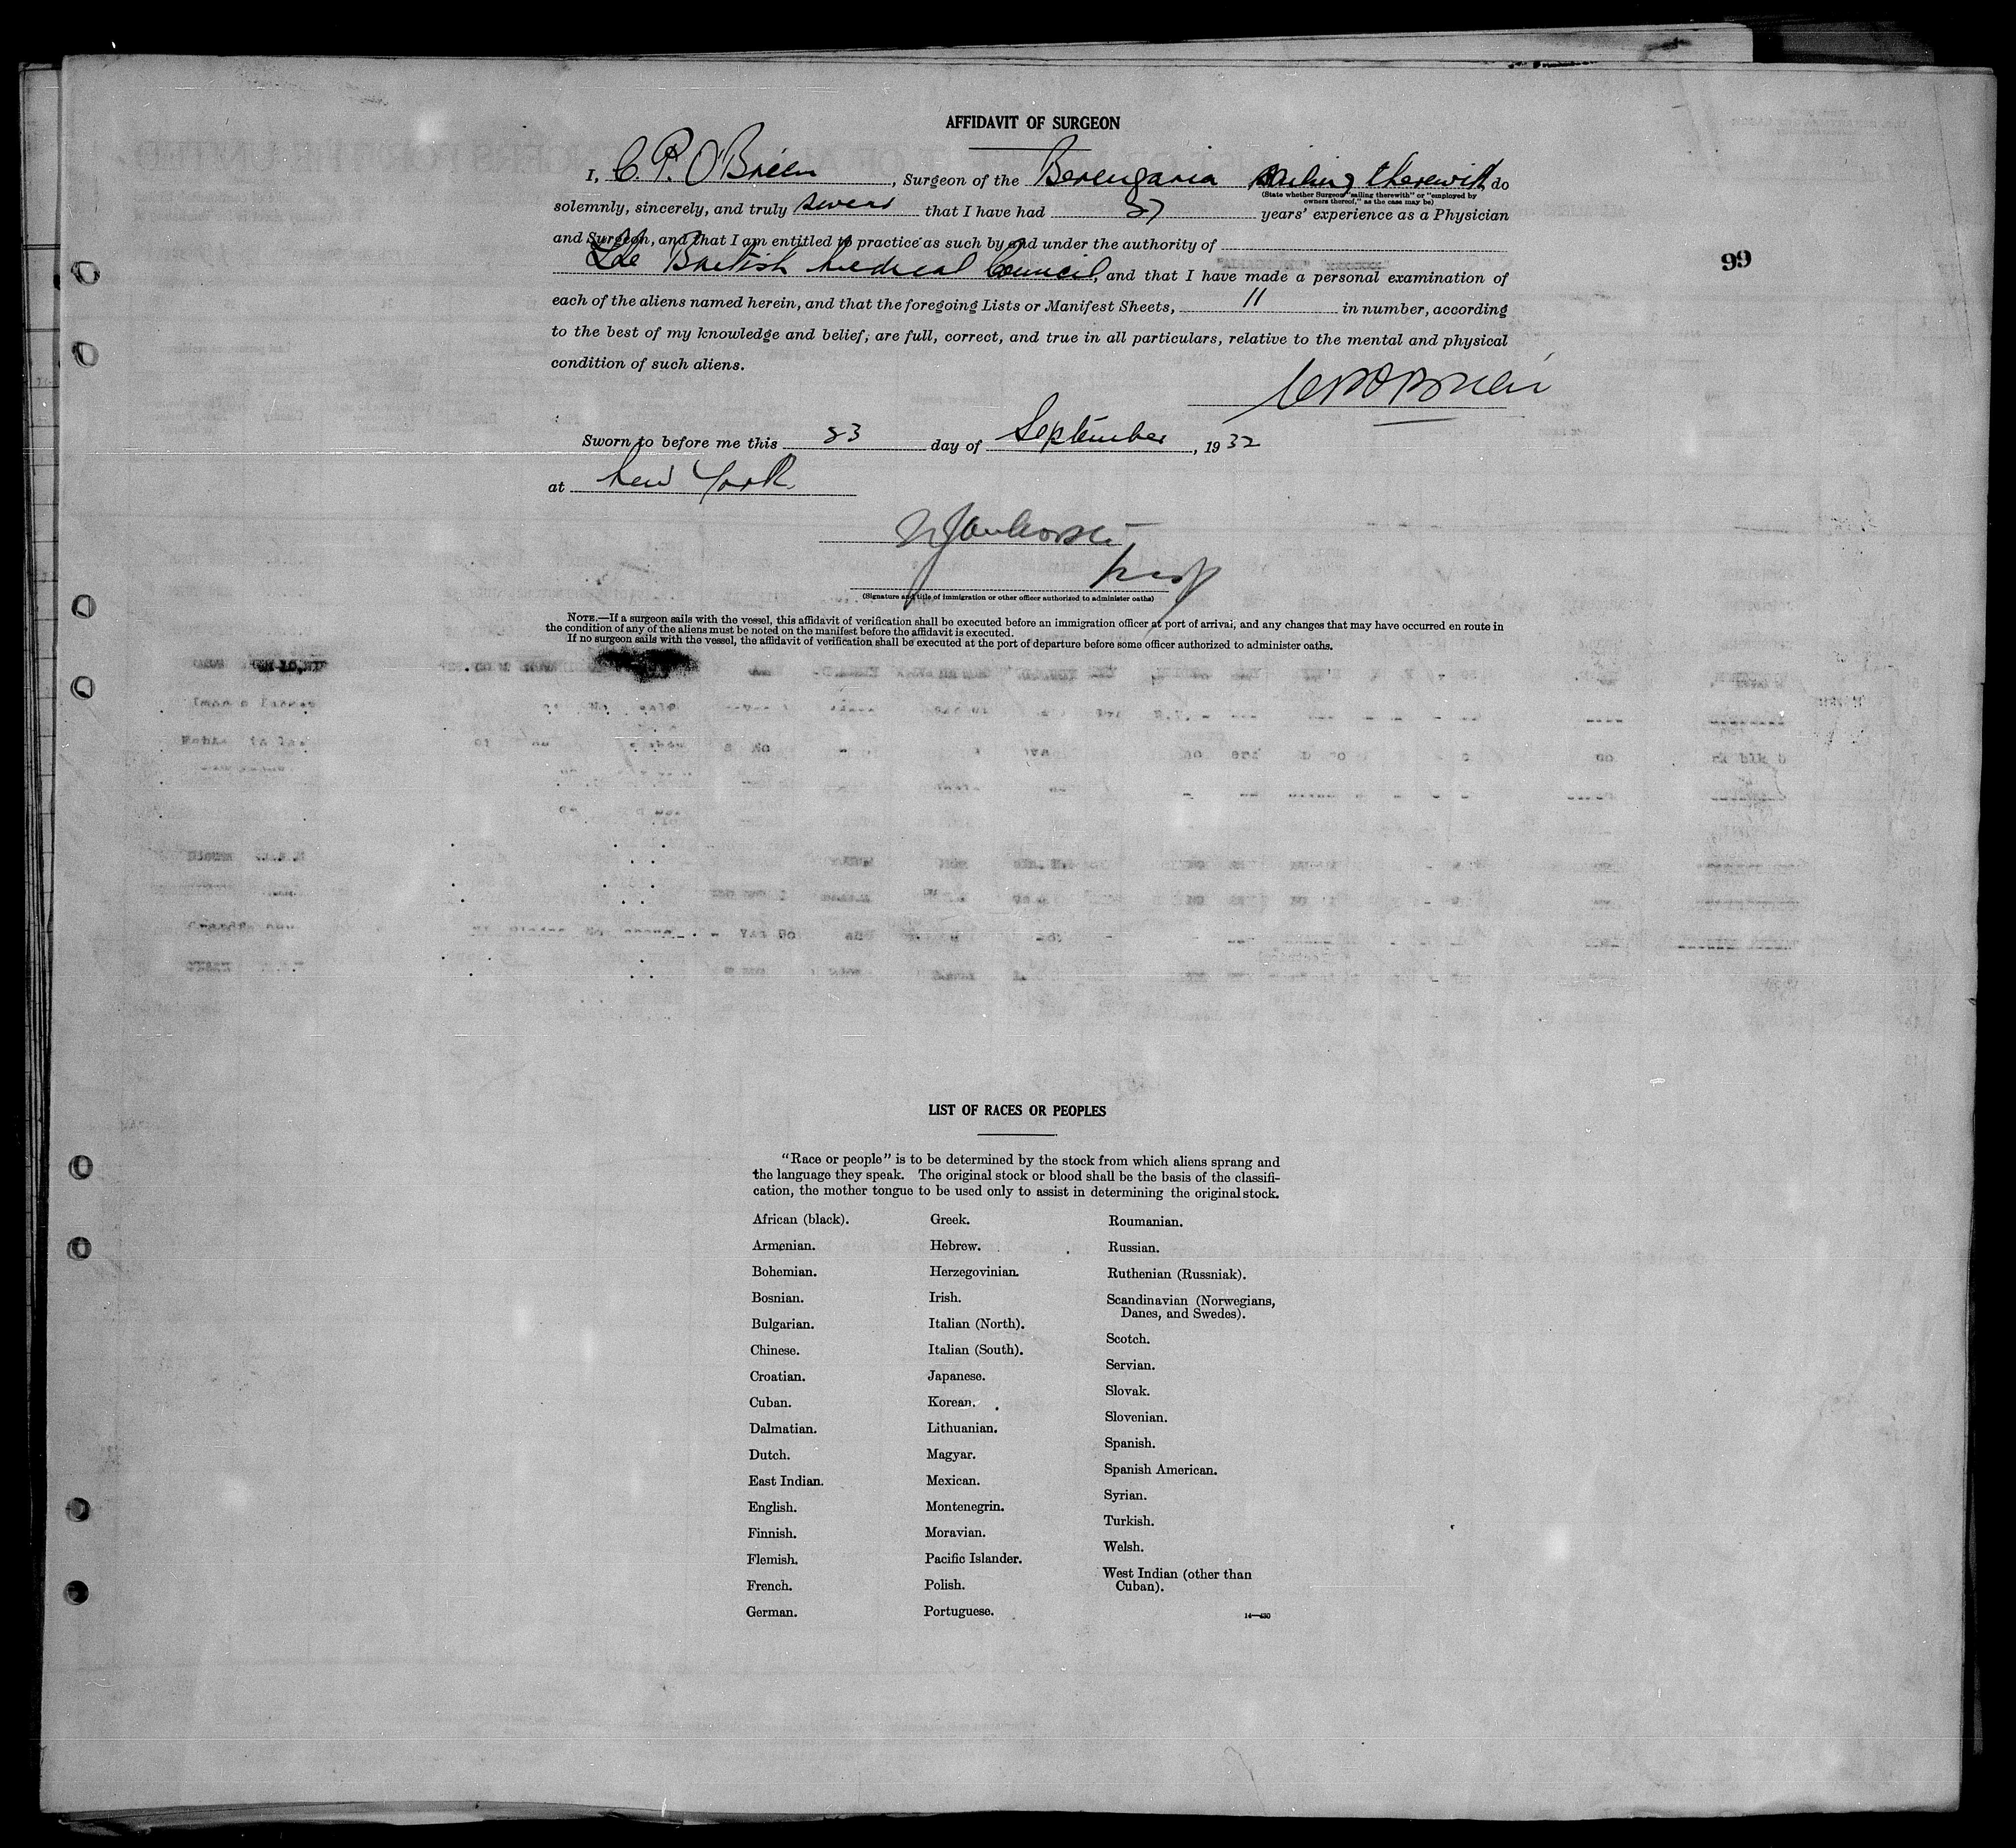 AFFIDAVIT OF SURGEON
I, C. P. O'Brien, Surgeon of the Berengaria sailing therewith do
(State whether Surgeon "sailing therewith" or "employed by
owners thereof," as the case may be)
solemnly, sincerely, and truly swear that I have had 27 years' experience as a Physician
and Surgeon, and that I am entitled to practice as such by and under the authority of
The British Medical Council, and that I have made a personal examination of
99
each of the aliens named herein, and that the foregoing Lists or Manifest Sheets, 11 in number, according
to the best of my knowledge and belief, are full, correct, and true in all particulars, relative to the mental and physical
condition of such aliens.
CPO'Brien
Sworn to before me this 23 day of September, 1932
at New York
Insp
(Signature and title of immigration or other officer authorized to administer oaths)
NOTE.—If a surgeon sails with the vessel, this affidavit of verification shall be executed before an immigration officer at port of arrival, and any changes that may have occurred en route in
the condition of any of the aliens must be noted on the manifest before the affidavit is executed.
If no surgeon sails with the vessel, the affidavit of verification shall be executed at the port of departure before some officer authorized to administer oaths.
LIST OF RACES OR PEOPLES
"Race or people" is to be determined by the stock from which aliens sprang and
the language they speak. The original stock or blood shall be the basis of the classifi-
cation, the mother tongue to be used only to assist in determining the original stock.
African (black).
Armenian.
Bohemian.
Bosnian.
Bulgarian.
Chinese.
Croatian.
Cuban.
Dalmatian.
Dutch.
East Indian.
English.
Finnish.
Flemish.
French.
German.
Greek.
Hebrew.
Herzegovinian.
Irish.
Italian (North).
Italian (South).
Japanese.
Korean.
Lithuanian.
Magyar.
Mexican.
Montenegrin.
Moravian.
Pacific Islander.
Polish.
Portuguese.
Roumanian.
Russian.
Ruthenian (Russniak).
Scandinavian (Norwegians,
Danes, and Swedes).
Scotch.
Servian.
Slovak.
Slovenian.
Spanish.
Spanish American.
Syrian.
Turkish.
Welsh.
West Indian (other than
Cuban).
14—430